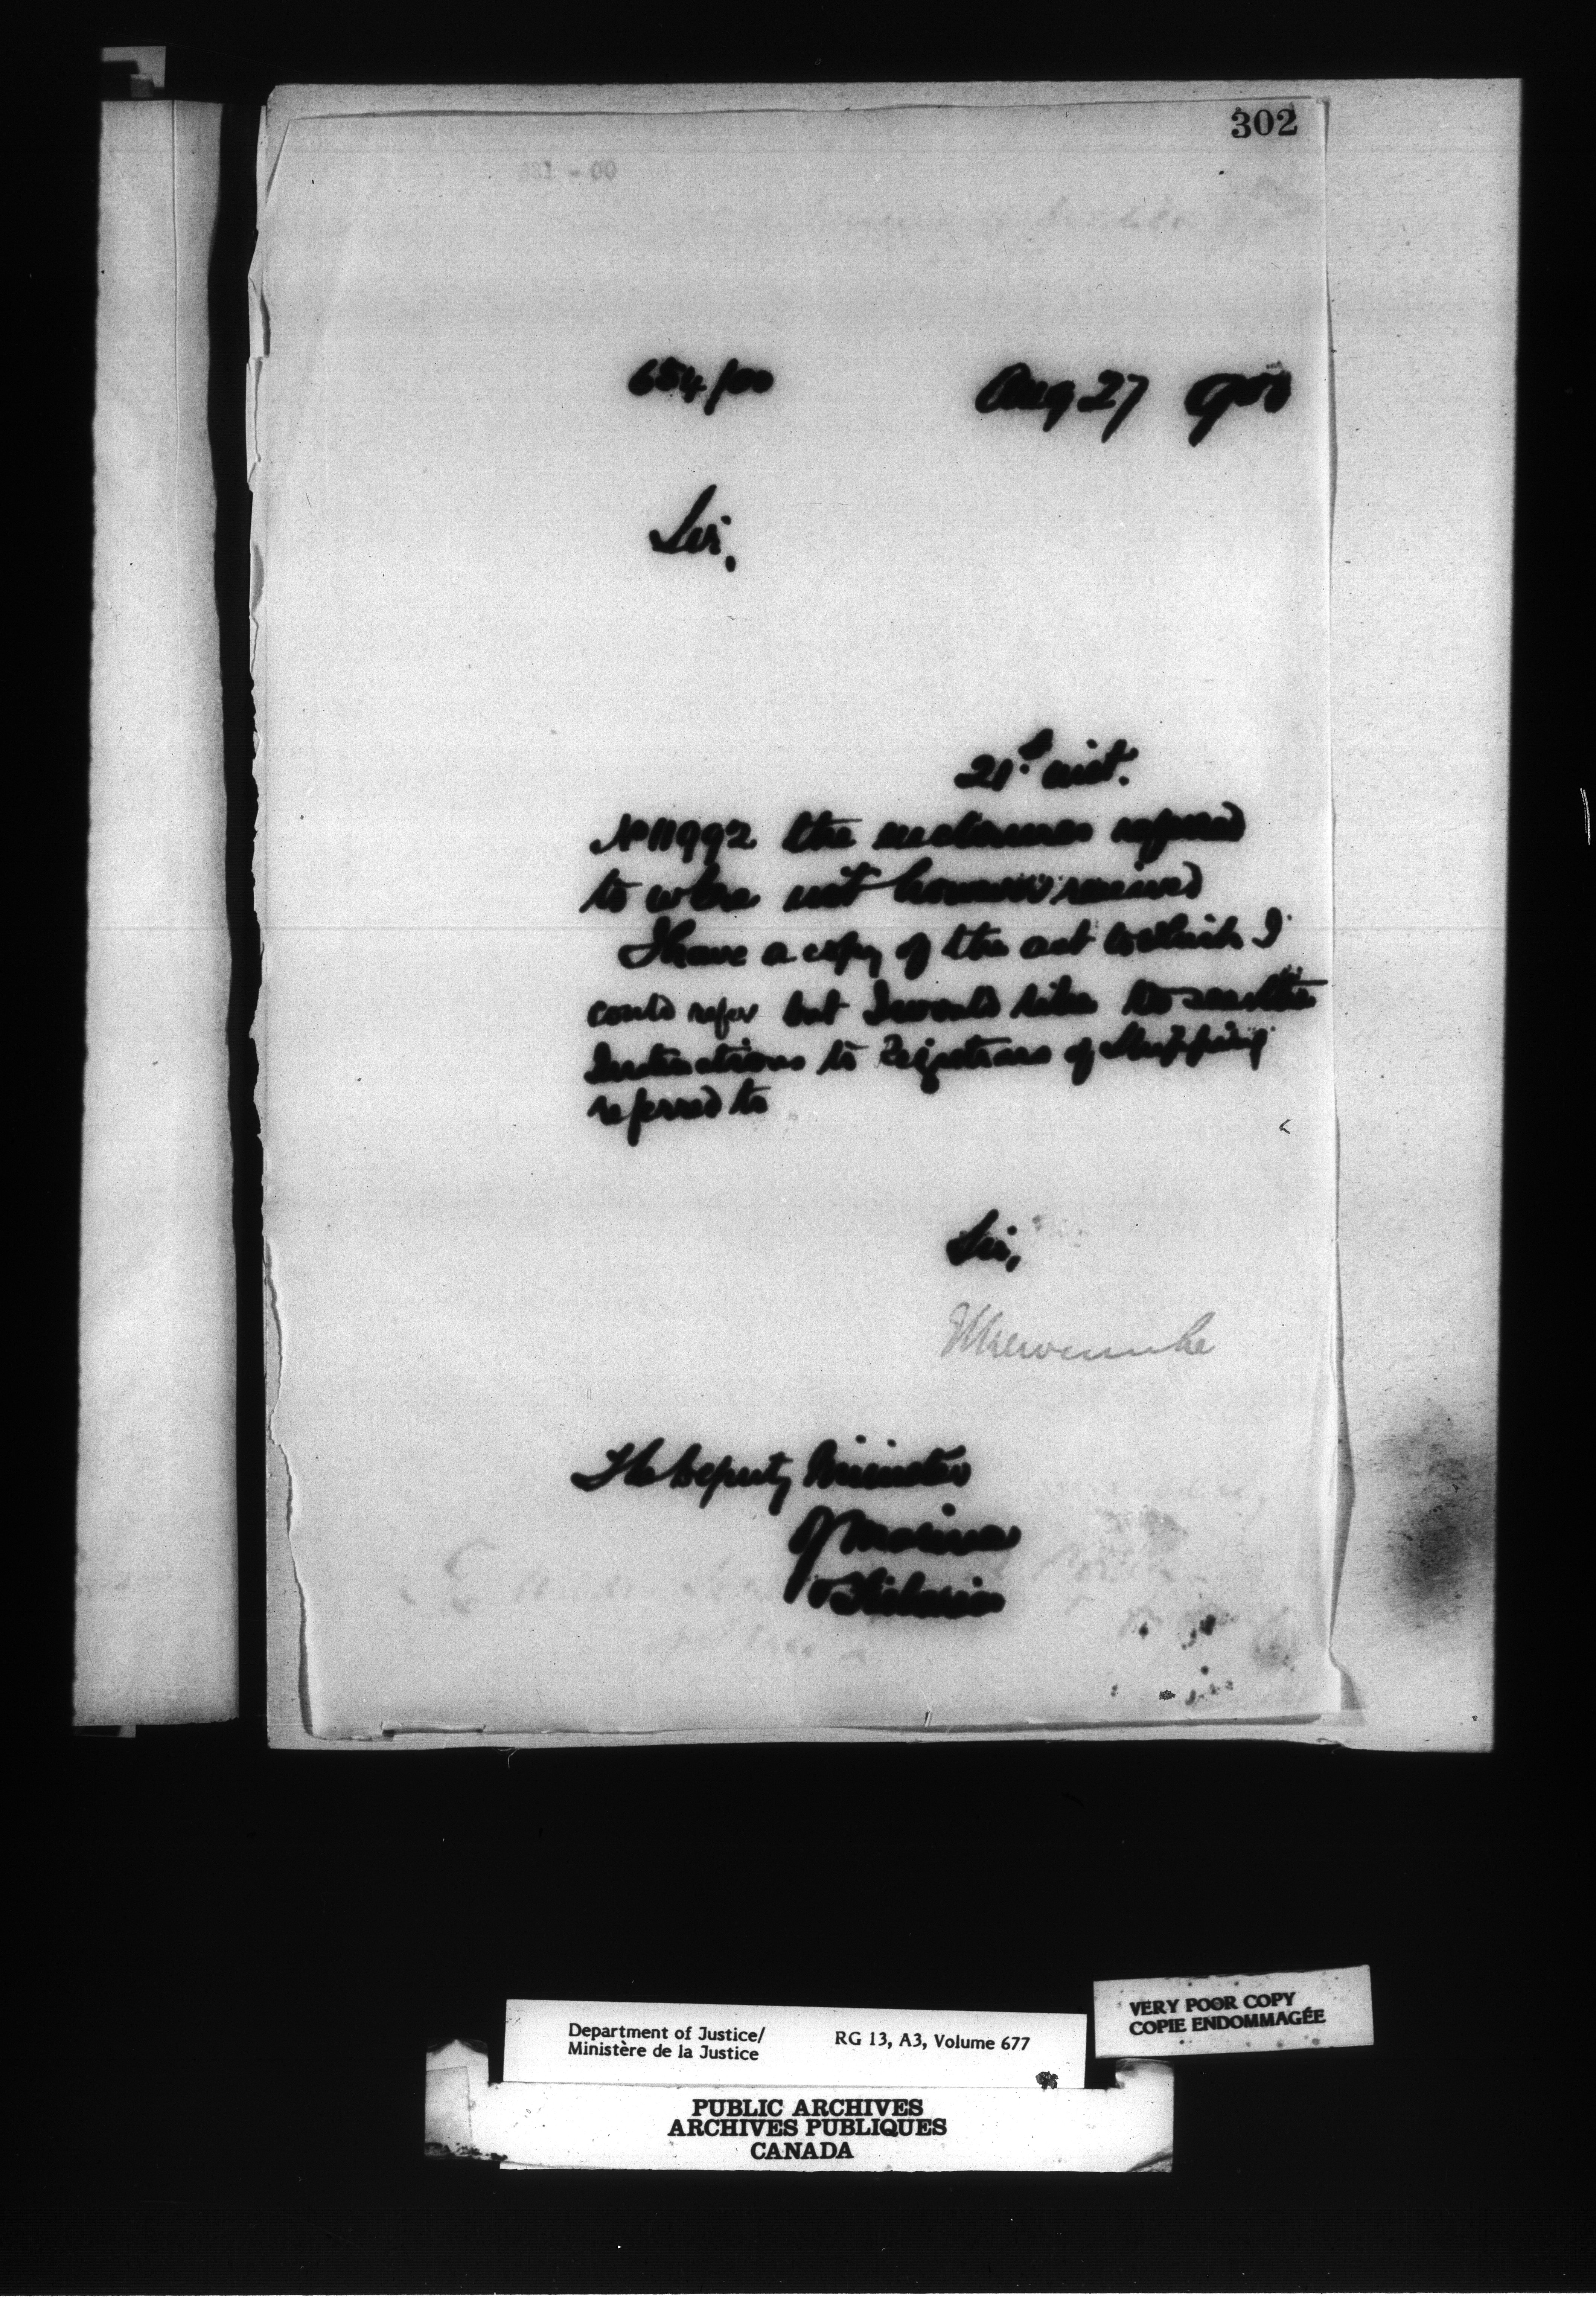 302
654/00 Aug 27 1900
Sir,
21st inst.
No 11992 the enclosures referred
to were not however received
I have a copy of the act to which I
could refer but I would like to see the
Instructions to Registrars of Shipping
referred to
Sir,
Newcombe
The Deputy Minister
of Marine
& Fisheries
Department of Justice/
Ministère de la Justice
RG 13, A3, Volume 677
VERY POOR COPY
COPIE ENDOMMAGÉE
PUBLIC ARCHIVES
ARCHIVES PUBLIQUES
CANADA